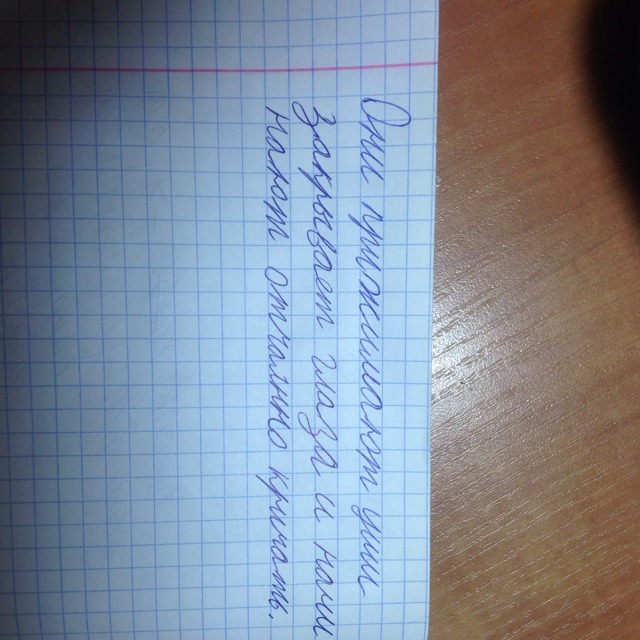 Они прижимают уши
закрывает глаза и начи
нают отчаянно кричать.